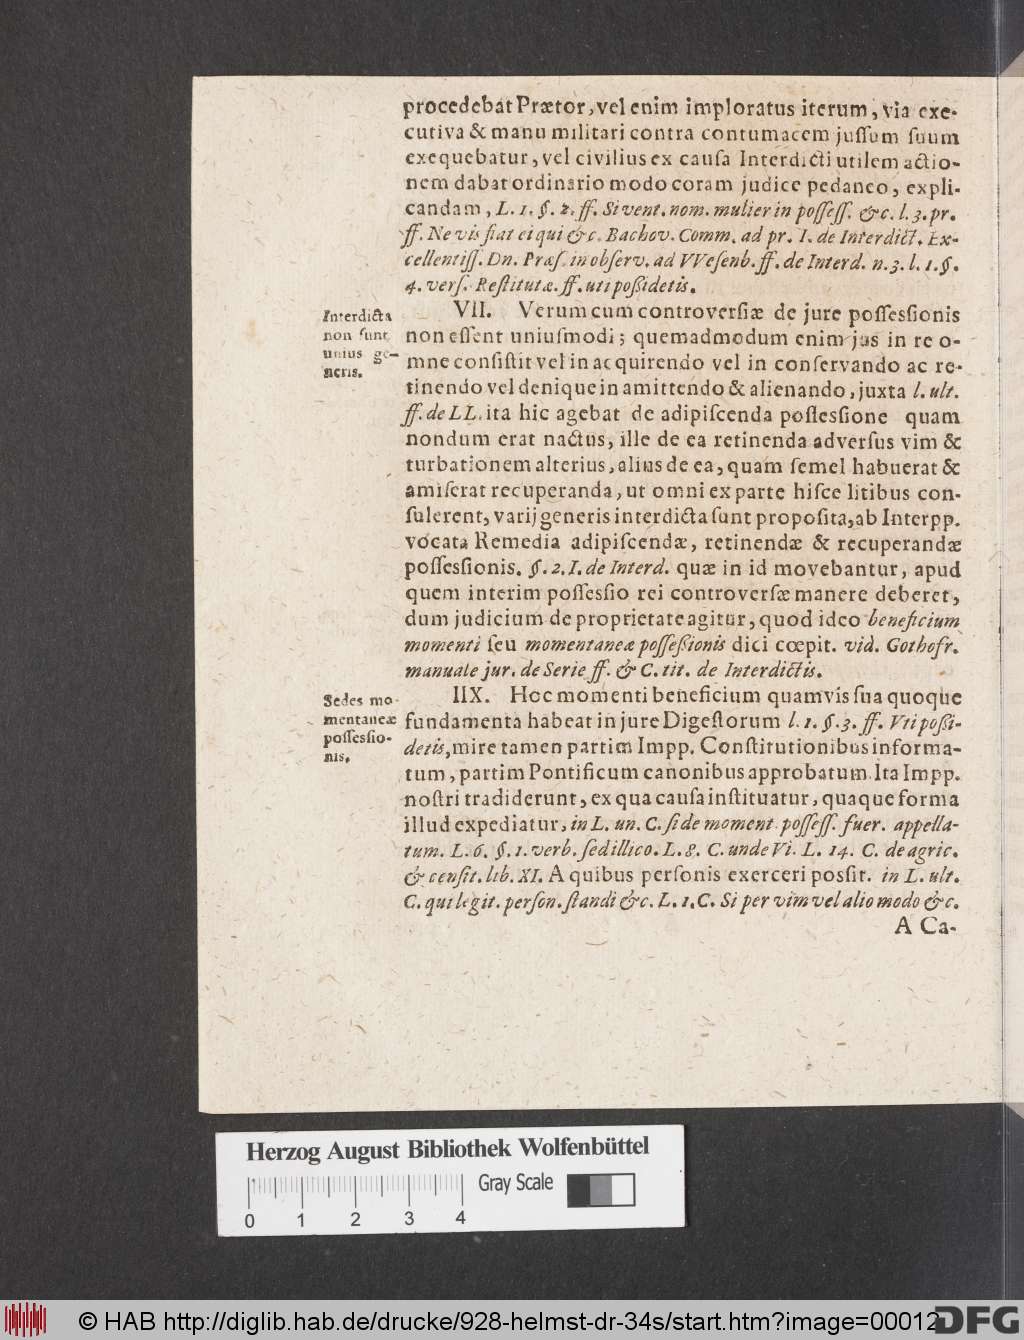 procedebat Prætor, vel enim imploratus iterum, via exe-
cutiva & manu militari contra contumacem juſſum ſuum
exequebatur, vel civilius ex cauſa Interdicti utilem actio-
nem dabat ordinario modo coram judice pedaneo, expli-
candam, L. 1. §. 2. ff. Si vent. nom. mulier in poſſeſſ. &c. l. 3. pr.
ff. Ne vis fiat ei qui &c. Bachov. Comm. ad pr. I. de Interdict. Ex-
cellentiſſ. Dn. Præſ. in obſerv. ad VVeſenb. ff. de Interd. n. 3. l. 1. §.
4. verſ. Reſtitutæ. ff. uti poßidetis.
Interdicta
non ſunt
unius ge-
neris.
VII. Verum cum controverſiæ de jure poſſesſionis
non eſſent uniuſmodi; quemadmodum enim jus in re o-
mne conſiſtit vel in acquirendo vel in conſervando ac re-
tinendo vel denique in amittendo & alienando, juxta l. ult.
ff. de LL. ita hic agebat de adipiſcenda poſſesſione quam
nondum erat nactus, ille de ea retinenda adverſus vim &
turbationem alterius, alius de ea, quam ſemel habuerat &
amiſerat recuperanda, ut omni ex parte hiſce litibus con-
ſulerent, varij generis interdicta ſunt propoſita, ab Interpp.
vocata Remedia adipiſcendæ, retinendæ & recuperandæ
poſſesſionis. §. 2. I. de Interd. quæ in id movebantur, apud
quem interim poſſesſio rei controverſæ manere deberet,
dum judicium de proprietate agitur, quod ideo beneficium
momenti ſeu momentaneæ poſſeßionis dici cœpit. vid. Gothofr.
manuale jur. de Serie ff. & C. tit. de Interdictis.
Sedes mo-
mentaneæ
poſſesſio-
nis.
IIX. Hoc momenti beneficium quamvis ſua quoque
fundamenta habeat in jure Digeſtorum l. 1. §. 3. ff. Vti poßi-
detis, mire tamen partim Impp. Conſtitutionibus informa-
tum, partim Pontificum canonibus approbatum. Ita Impp.
noſtri tradiderunt, ex qua cauſa inſtituatur, quaque forma
illud expediatur, in L. un. C. ſi de moment. poſſeſſ. fuer. appella-
tum. L. 6. §. 1. verb. ſed illico. L. 8. C. unde Vi. L. 14. C. de agric.
& cenſit. lib. XI. A quibus perſonis exerceri posſit. in L. ult.
C. qui legit. perſon. ſtandi &c. L. 1. C. Si per vim vel alio modo &c.
A Ca-
Herzog August Bibliothek Wolfenbüttel
Gray Scale
0 1 2 3 4
© HAB http://diglib.hab.de/drucke/928-helmst-dr-34s/start.htm?image=00012
DFG